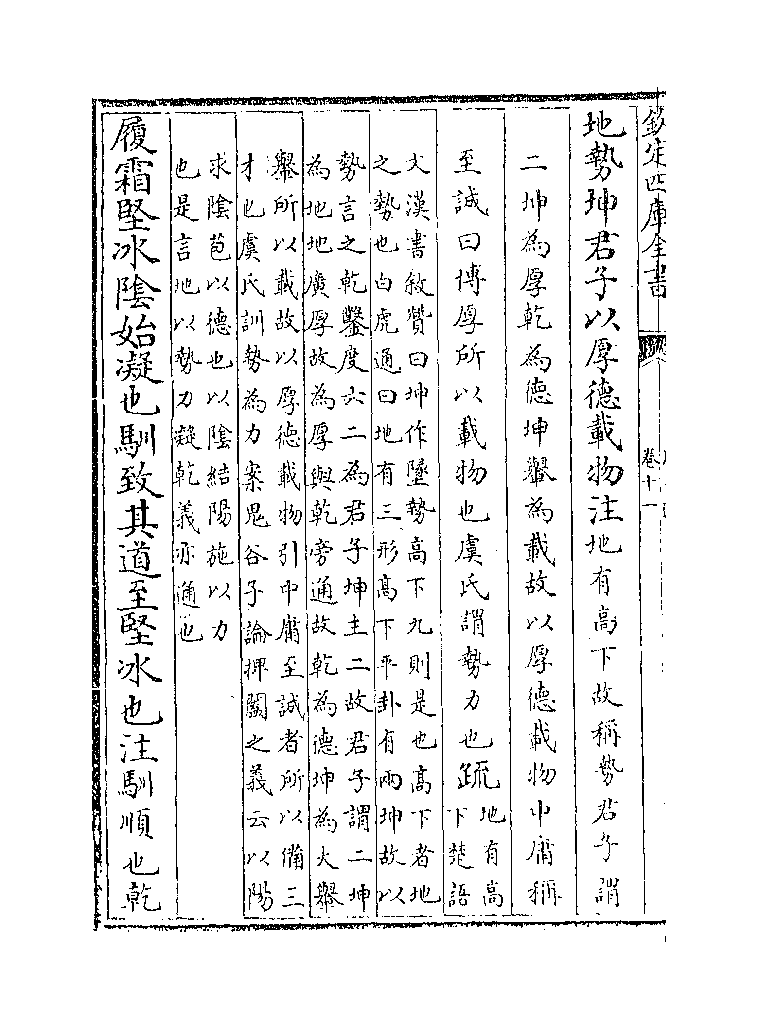 欽定四庫全書
卷十一
地勢坤君子以厚德載物注地有高下故稱勢君子謂
二坤為厚乾為德坤轝為載故以厚德載物中庸稱
至誠曰博厚所以載物也虞氏謂勢力也疏地有高
下楚語
文漢書敘贊曰坤作墬勢高下九則是也高下者地
之勢也白虎通曰地有三形高下平卦有兩坤故以
勢言之乾鑿度六二為君子坤主二故君子謂二坤
為地地廣厚故為厚與乾旁通故乾為德坤為大轝
轝所以載故以厚德載物引中庸至誠者所以備三
才也虞氏訓勢為力案鬼谷子論捭闔之義云以陽
求陰苞以德也以陰結陽施以力
也是言地以勢力凝乾義亦通也
履霜堅冰陰始凝也馴致其道至堅冰也注馴順也乾